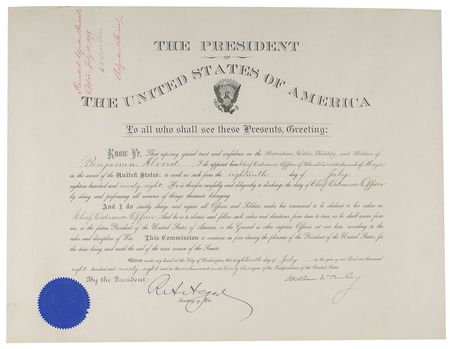 THE PRESIDENT
OF
THE UNITED STATES OF AMERICA
To all who shall see these Presents, Greeting:
Know Ye, That reposing special trust and confidence in the Patriotism, Valor, Fidelity, and Abilities of
Benjamin Alvord, I do appoint him Chief Ordnance Officer of Volunteers with the rank of Major
in the service of the United States: to rank as such from the eighteenth day of July
eighteen hundred and ninety eight. He is therefore carefully and diligently to discharge the duty of Chief Ordnance Officer
by doing and performing all manner of things thereunto belonging.
And I do strictly charge and require all Officers and Soldiers under his command to be obedient to his orders as
Chief Ordnance Officer. And he is to observe and follow such orders and directions, from time to time, as he shall receive from
me, or the future President of the United States of America, or the General or other superior Officers set over him, according to the
rules and discipline of War. This Commission to continue in force during the pleasure of the President of the United States, for
the time being, and until the end of the next session of the Senate.
Given under my hand at the City of Washington, this eighteenth day of July in the year of our Lord one thousand
eight hundred and ninety eight and in the one hundred and twenty third year of the Independence of the United States.
By the President:
William McKinley
R. A. Alger
Secretary of War.